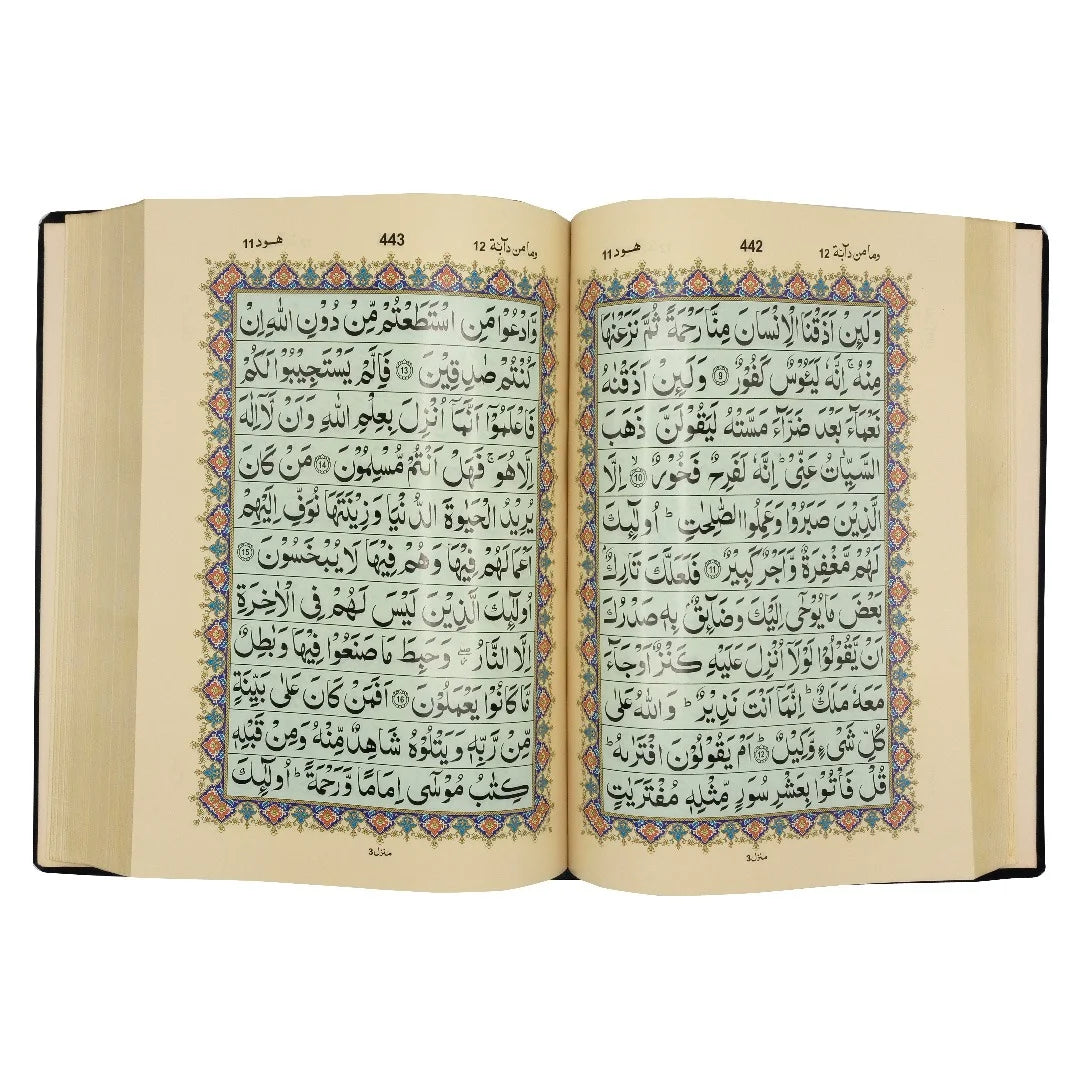 وما من دآبة 12
442
هود 11
وَلَئِنْ اَذَقْنَا الْاِنْسَانَ مِنَّا رَحْمَةً ثُمَّ نَزَعْنٰهَا
مِنْهُ ۚ اِنَّهٗ لَيَئُوْسٌ كَفُوْرٌ ۝9 وَلَئِنْ اَذَقْنٰهُ
نَعْمَآءَ بَعْدَ ضَرَّآءَ مَسَّتْهُ لَيَقُوْلَنَّ ذَهَبَ
السَّيِّاٰتُ عَنِّيْ ؕ اِنَّهٗ لَفَرِحٌ فَخُوْرٌ ۝10 اِلَّا
الَّذِيْنَ صَبَرُوْا وَعَمِلُوا الصّٰلِحٰتِ ؕ اُولٰٓئِكَ
لَهُمْ مَّغْفِرَةٌ وَّاَجْرٌ كَبِيْرٌ ۝11 فَلَعَلَّكَ تَارِكٌۢ
بَعْضَ مَا يُوْحٰٓى اِلَيْكَ وَضَآئِقٌۢ بِهٖ صَدْرُكَ
اَنْ يَّقُوْلُوْا لَوْلَاۤ اُنْزِلَ عَلَيْهِ كَنْزٌ اَوْ جَآءَ
مَعَهٗ مَلَكٌ ؕ اِنَّمَاۤ اَنْتَ نَذِيْرٌ ؕ وَاللّٰهُ عَلٰى
كُلِّ شَيْءٍ وَّكِيْلٌ ؕ ۝12 اَمْ يَقُوْلُوْنَ افْتَرٰىهُ ؕ
قُلْ فَاْتُوْا بِعَشْرِ سُوَرٍ مِّثْلِهٖ مُفْتَرَيٰتٍ
منزل 3
وما من دآبة 12
443
هود 11
وَّادْعُوْا مَنِ اسْتَطَعْتُمْ مِّنْ دُوْنِ اللّٰهِ اِنْ
كُنْتُمْ صٰدِقِيْنَ ۝13 فَاِلَّمْ يَسْتَجِيْبُوْا لَكُمْ
فَاعْلَمُوْۤا اَنَّمَاۤ اُنْزِلَ بِعِلْمِ اللّٰهِ وَاَنْ لَّاۤ اِلٰهَ
اِلَّا هُوَ ۚ فَهَلْ اَنْتُمْ مُّسْلِمُوْنَ ۝14 مَنْ كَانَ
يُرِيْدُ الْحَيٰوةَ الدُّنْيَا وَزِيْنَتَهَا نُوَفِّ اِلَيْهِمْ
اَعْمَالَهُمْ فِيْهَا وَهُمْ فِيْهَا لَا يُبْخَسُوْنَ ۝15
اُولٰٓئِكَ الَّذِيْنَ لَيْسَ لَهُمْ فِى الْاٰخِرَةِ
اِلَّا النَّارُ ۖ وَحَبِطَ مَا صَنَعُوْا فِيْهَا وَبٰطِلٌ
مَّا كَانُوْا يَعْمَلُوْنَ ۝16 اَفَمَنْ كَانَ عَلٰى بَيِّنَةٍ
مِّنْ رَّبِّهٖ وَيَتْلُوْهُ شَاهِدٌ مِّنْهُ وَمِنْ قَبْلِهٖ
كِتٰبُ مُوْسٰٓى اِمَامًا وَّرَحْمَةً ؕ اُولٰٓئِكَ
منزل 3